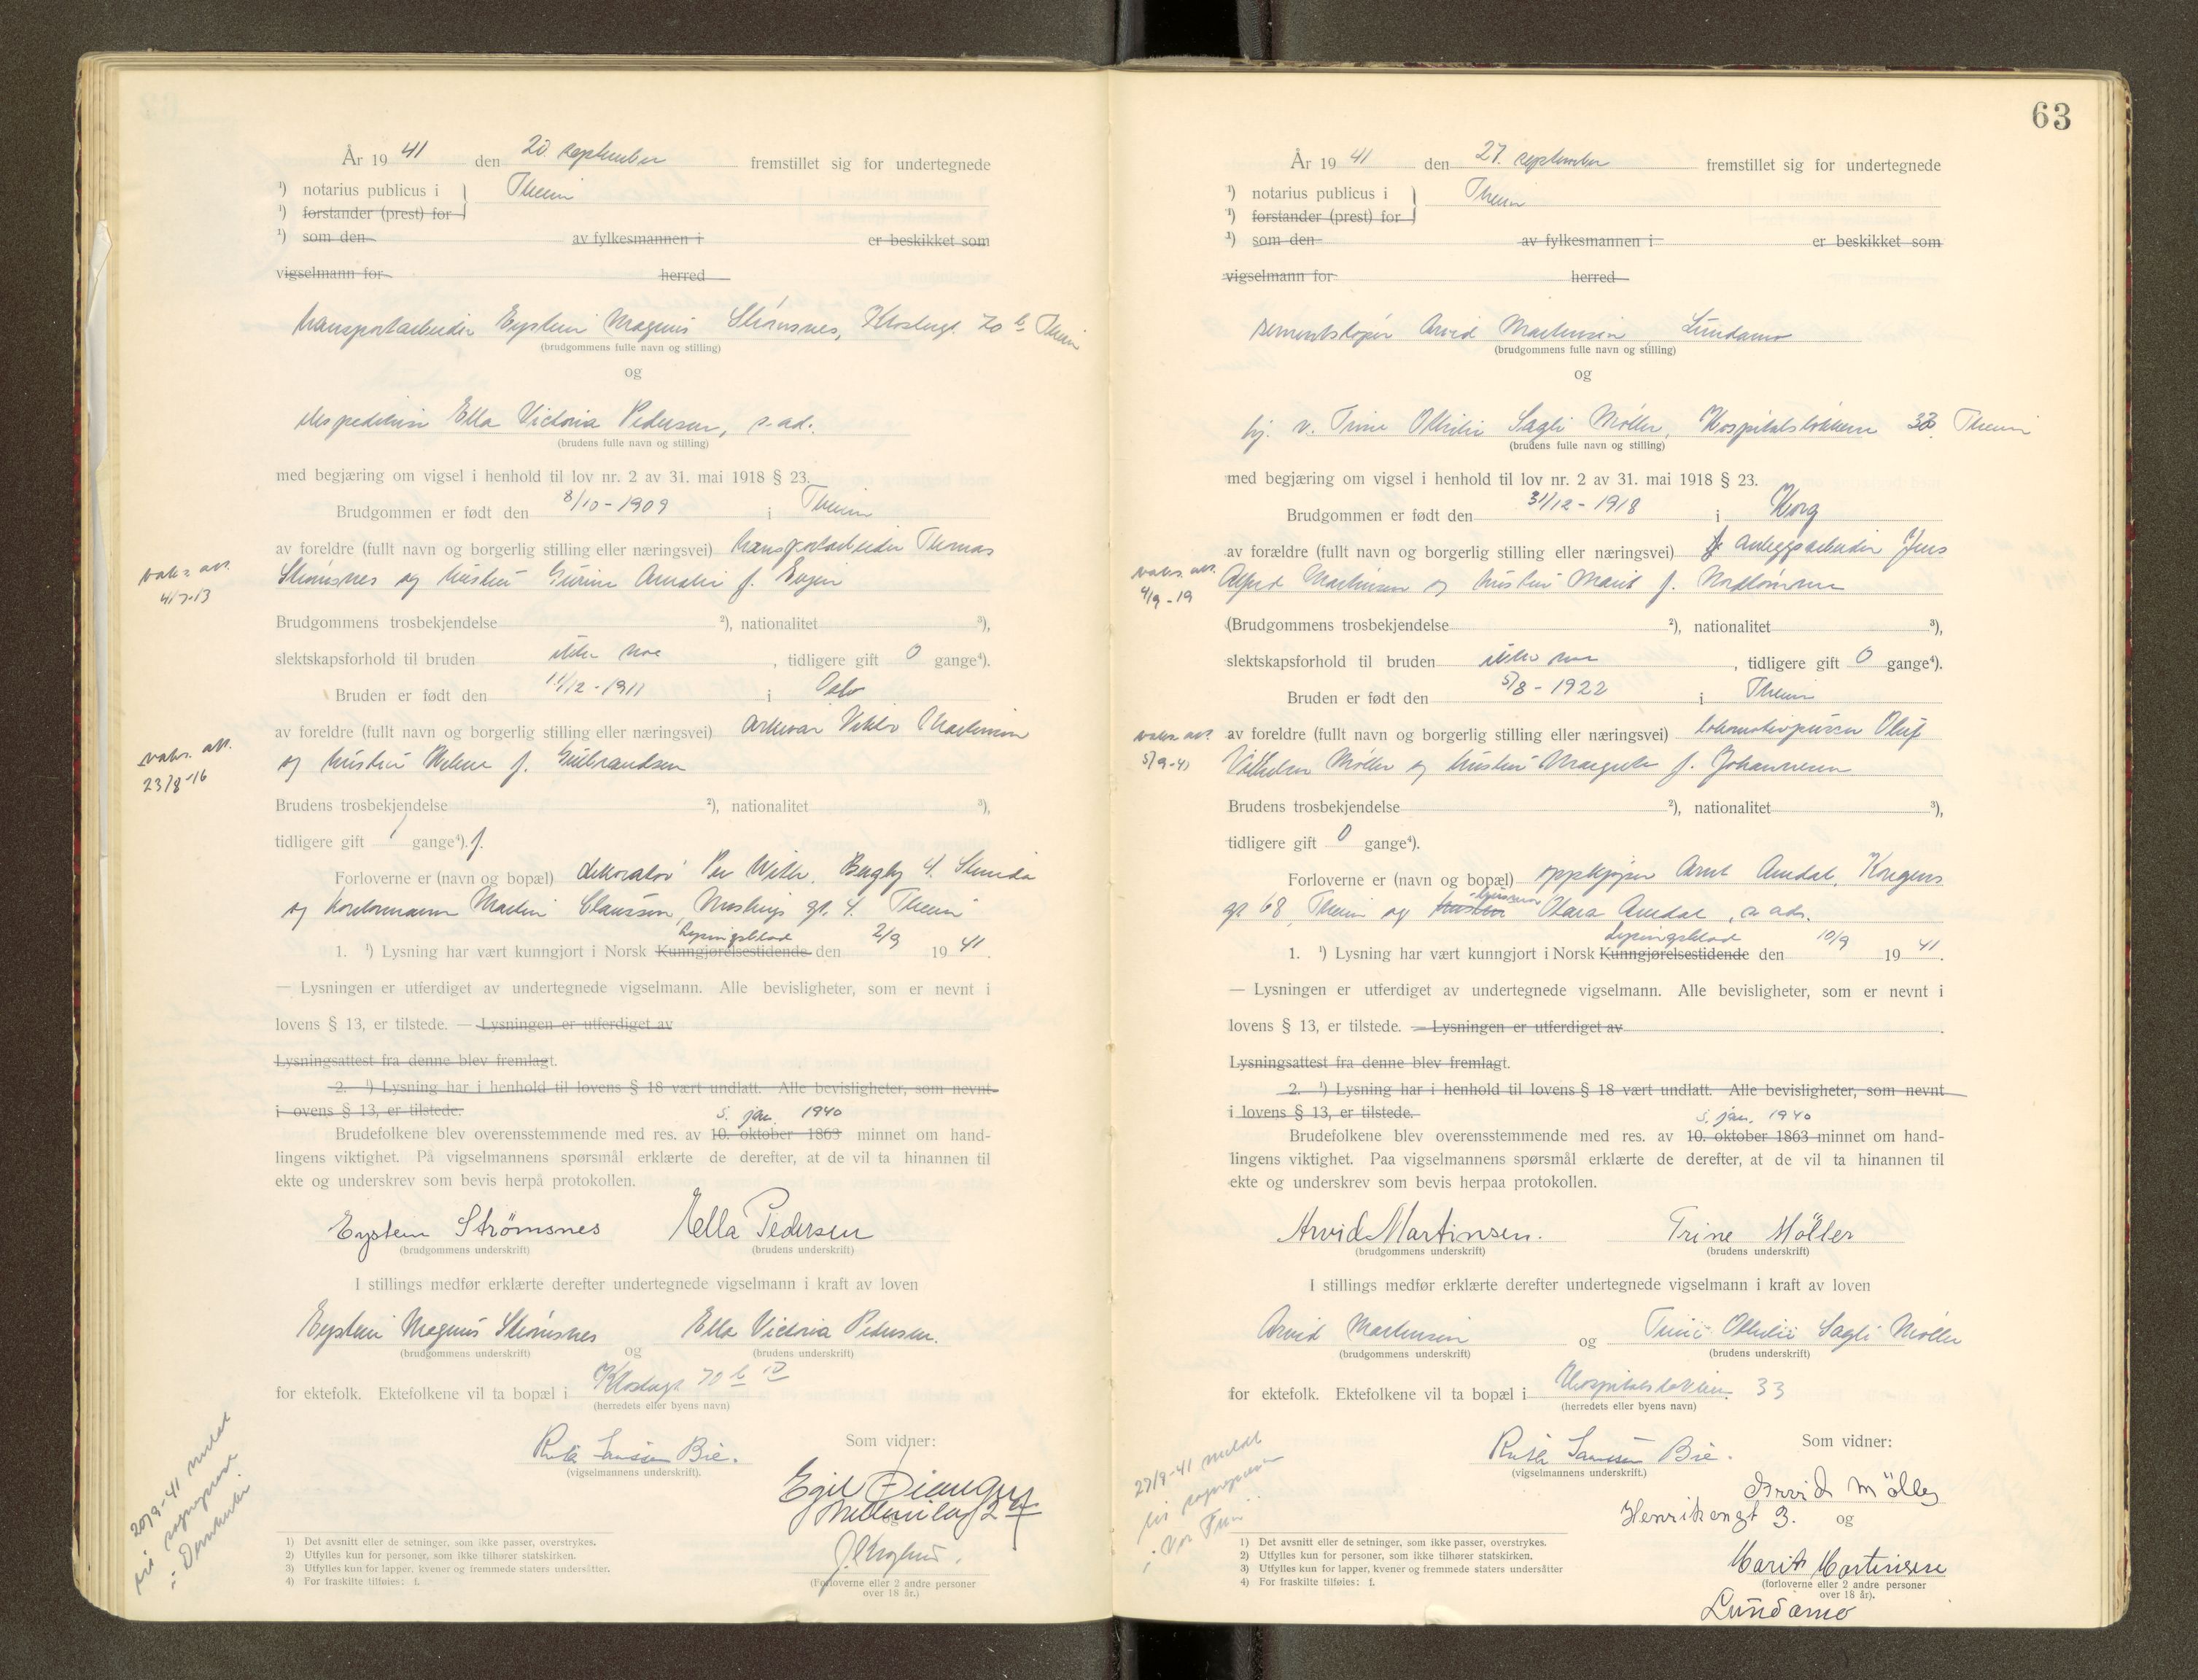 År 19 41 den 20. september fremstillet sig for undertegnede
¹) notarius publicus i } Theim
¹) forstander (prest) for
¹) som den av fylkesmannen i er beskikket som
vigselmann for herred
transportarbeider Eystein Magnus Strømsnes, Klostergt. 70 b Theim
(brudgommens fulle navn og stilling)
og
ekspeditrise Ella Victoria Pedersen, s. ad.
(brudens fulle navn og stilling)
med begjæring om vigsel i henhold til lov nr. 2 av 31. mai 1918 § 23.
Brudgommen er født den 8/10-1909 i Theim
av foreldre (fullt navn og borgerlig stilling eller næringsvei) transportarbeider Thomas
Strømsnes og hustru Gurine Amalie f.
vaks. att.
4/7-13
Brudgommens trosbekjendelse ²), nationalitet ³),
slektskapsforhold til bruden ikke noe , tidligere gift 0 gange⁴).
Bruden er født den 11/12-1911 i Oslo
av foreldre (fullt navn og borgerlig stilling eller næringsvei) arkivar Viktor Martinsen
og hustru Helene f. Gulbrandsen
vaks. att.
23/8-16
Brudens trosbekjendelse ²), nationalitet ³),
tidligere gift 1 gange⁴). f.
Forloverne er (navn og bopæl) dekoratør Per With. Bugby 4. Strinda
og kontormann Martin Claussen, gt. 4. Theim
1. ¹) Lysning har vært kunngjort i Norsk Kunngjørelsestidende Lysingsblad den 2/9 19 41.
— Lysningen er utferdiget av undertegnede vigselmann. Alle bevisligheter, som er nevnt i
lovens § 13, er tilstede. — Lysningen er utferdiget av
Lysningsattest fra denne blev fremlagt.
2. ¹) Lysning har i henhold til lovens § 18 vært undlatt. Alle bevisligheter, som nevnt
i ovens § 13, er tilstede.
5. jan. 1940
Brudefolkene blev overensstemmende med res. av 10. oktober 1863 minnet om hand-
lingens viktighet. På vigselmannens spørsmål erklærte de derefter, at de vil ta hinannen til
ekte og underskrev som bevis herpå protokollen.
Eystein Strömsnes Ella Pedersen
(brudgommens underskrift) (brudens underskrift)
I stillings medfør erklærte derefter undertegnede vigselmann i kraft av loven
Eystein Magnus Strømsnes og Ella Victoria Pedersen.
(brudgommens underskrift) (brudens underskrift)
for ektefolk. Ektefolkene vil ta bopæl i Klostergt 70 b
(herredets eller byens navn)
Ruth Bie.
(vigselmannens underskrift).
Som vidner:
Egil
og
(Forloverne eller 2 andre personer
over 18 år.)
20/9-41 meldt
til sogneprest
i Domkirken
1) Det avsnitt eller de setninger, som ikke passer, overstrykes.
2) Utfylles kun for personer, som ikke tilhører statskirken.
3) Utfylles kun for lapper, kvener og fremmede staters undersåtter.
4) For fraskilte tilføies: f.
63
År 19 41 den 27. september fremstillet sig for undertegnede
¹) notarius publicus i } Theim
¹) forstander (prest) for
¹) som den av fylkesmannen i er beskikket som
vigselmann for herred
sementstøper Arvid Martinsen Lundamo
(brudgommens fulle navn og stilling)
og
hj. v. Trine Othilie Sagli Møller, Hospitalsløkken 33 Theim
(brudens fulle navn og stilling)
med begjæring om vigsel i henhold til lov nr. 2 av 31. mai 1918 § 23.
Brudgommen er født den 31/12-1918 i Horg
av forældre (fullt navn og borgerlig stilling eller næringsvei) anleggsarbeider Jens
Alfred Martinsen og hustru Marit f.
vaks. att.
4/9-19
(Brudgommens trosbekjendelse ²), nationalitet ³),
slektskapsforhold til bruden ikke noe , tidligere gift 0 gange⁴).
Bruden er født den 5/8-1922 i Theim
av foreldre (fullt navn og borgerlig stilling eller næringsvei) lokomotivpusser Oluf
Vilhelm Møller og hustru Margrete f. Johannesen
vaks. att.
5/9-41
Brudens trosbekjendelse ²), nationalitet ³),
tidligere gift 0 gange⁴).
Forloverne er (navn og bopæl) oppkjøper Arnt Amdal, Kongens
gt 68, Theim og hustru Klara Amdal, s. ads.
1. ¹) Lysning har vært kunngjort i Norsk Kunngjørelsestidende Lysingsblad den 10/9 19 41.
— Lysningen er utferdiget av undertegnede vigselmann. Alle bevisligheter, som er nevnt i
lovens § 13, er tilstede. — Lysningen er utferdiget av .
Lysningsattest fra denne blev fremlagt.
2. ¹) Lysning har i henhold til lovens § 18 vært undlatt. Alle bevisligheter, som nevnt
i lovens § 13, er tilstede.
5. jan. 1940
Brudefolkene blev overensstemmende med res. av 10. oktober 1863 minnet om hand-
lingens viktighet. Paa vigselmannens spørsmål erklærte de derefter, at de vil ta hinannen til
ekte og underskrev som bevis herpaa protokollen.
Arvid Martinsen. Trine Möller
(brudgommens underskrift) (brudens underskrift)
I stillings medfør erklærte derefter undertegnede vigselmann i kraft av loven
Arvid Martinsen og Trine Othilie Sagli Møller
(brudgommens underskrift) (brudens underskrift)
for ektefolk. Ektefolkene vil ta bopæl i Hospitalsløkken 33
(herredets eller byens navn)
Ruth Bie.
(vigselmannens underskrift.)
Som vidner:
Arvid Möller
Henriksengt 3. og
Marit Martinsen
(forloverne eller 2 andre personer
over 18 år).
Lundamo
27/9-41 meldt
til sogneprest
i Vor Fru
1) Det avsnitt eller de setninger, som ikke passer, overstrykes.
2) Utfylles kun for personer, som ikke tilhører statskirken.
3) Utfylles kun for lapper, kvener og fremmede staters undersåtter
4) For fraskilte tilføies: f.